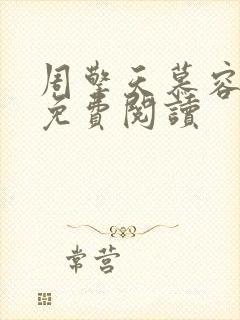 周擎天慕容
免費閱讀
常营